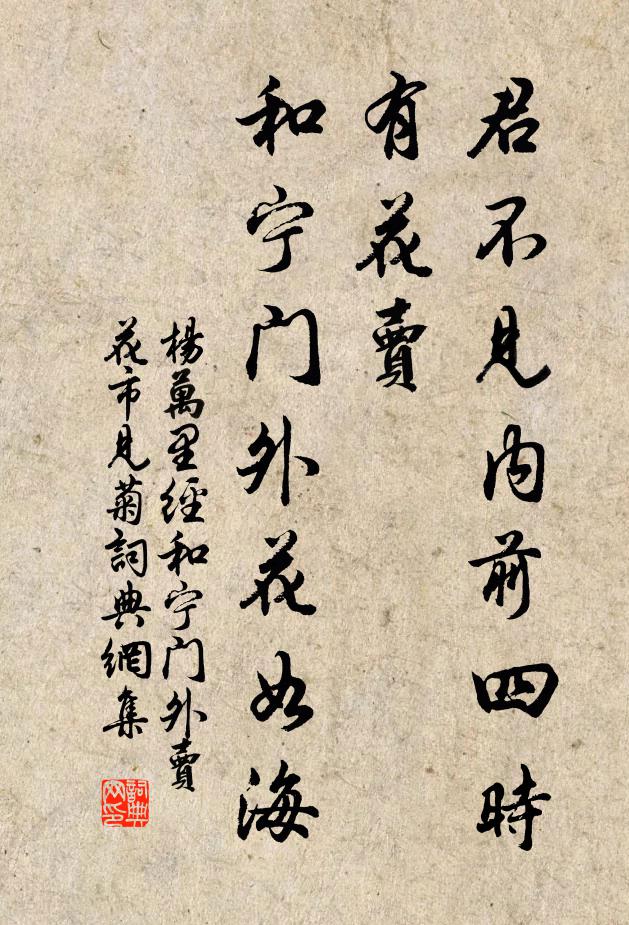 君不见内前四時
有花賣
和宁门外花如海
楊萬里經和宁门外賣
花市见菊詞典網集
詞典
网印